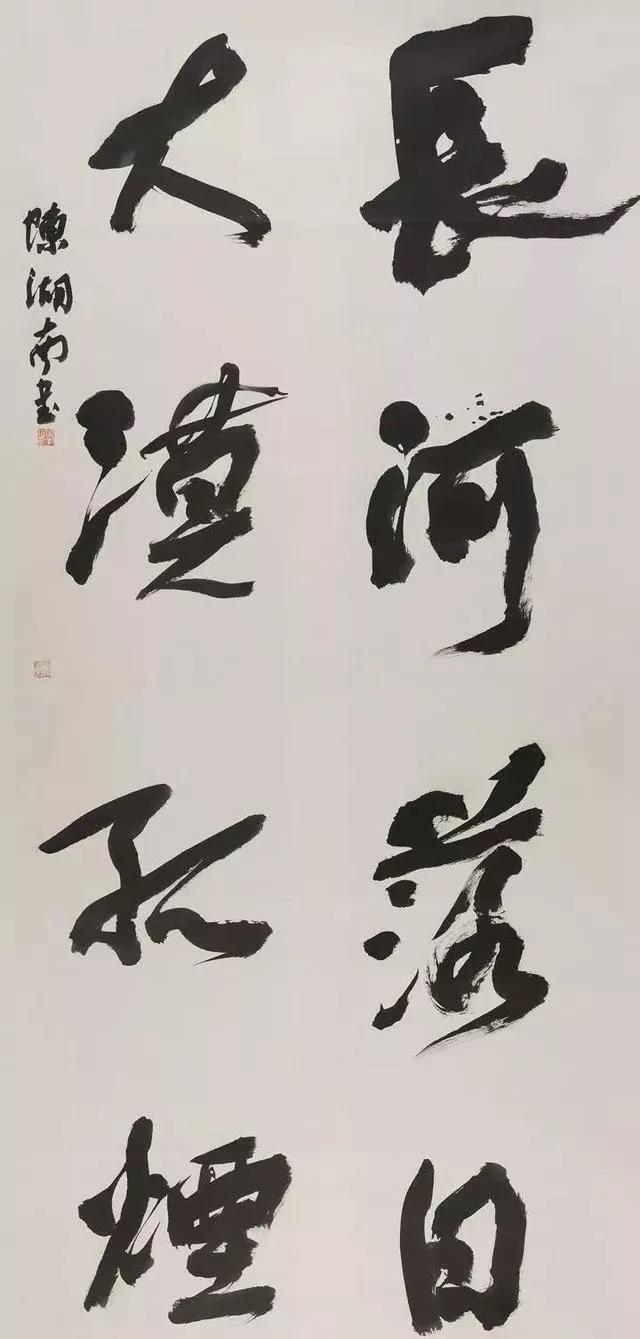 長河落日
大漠孤煙
陳湖南書